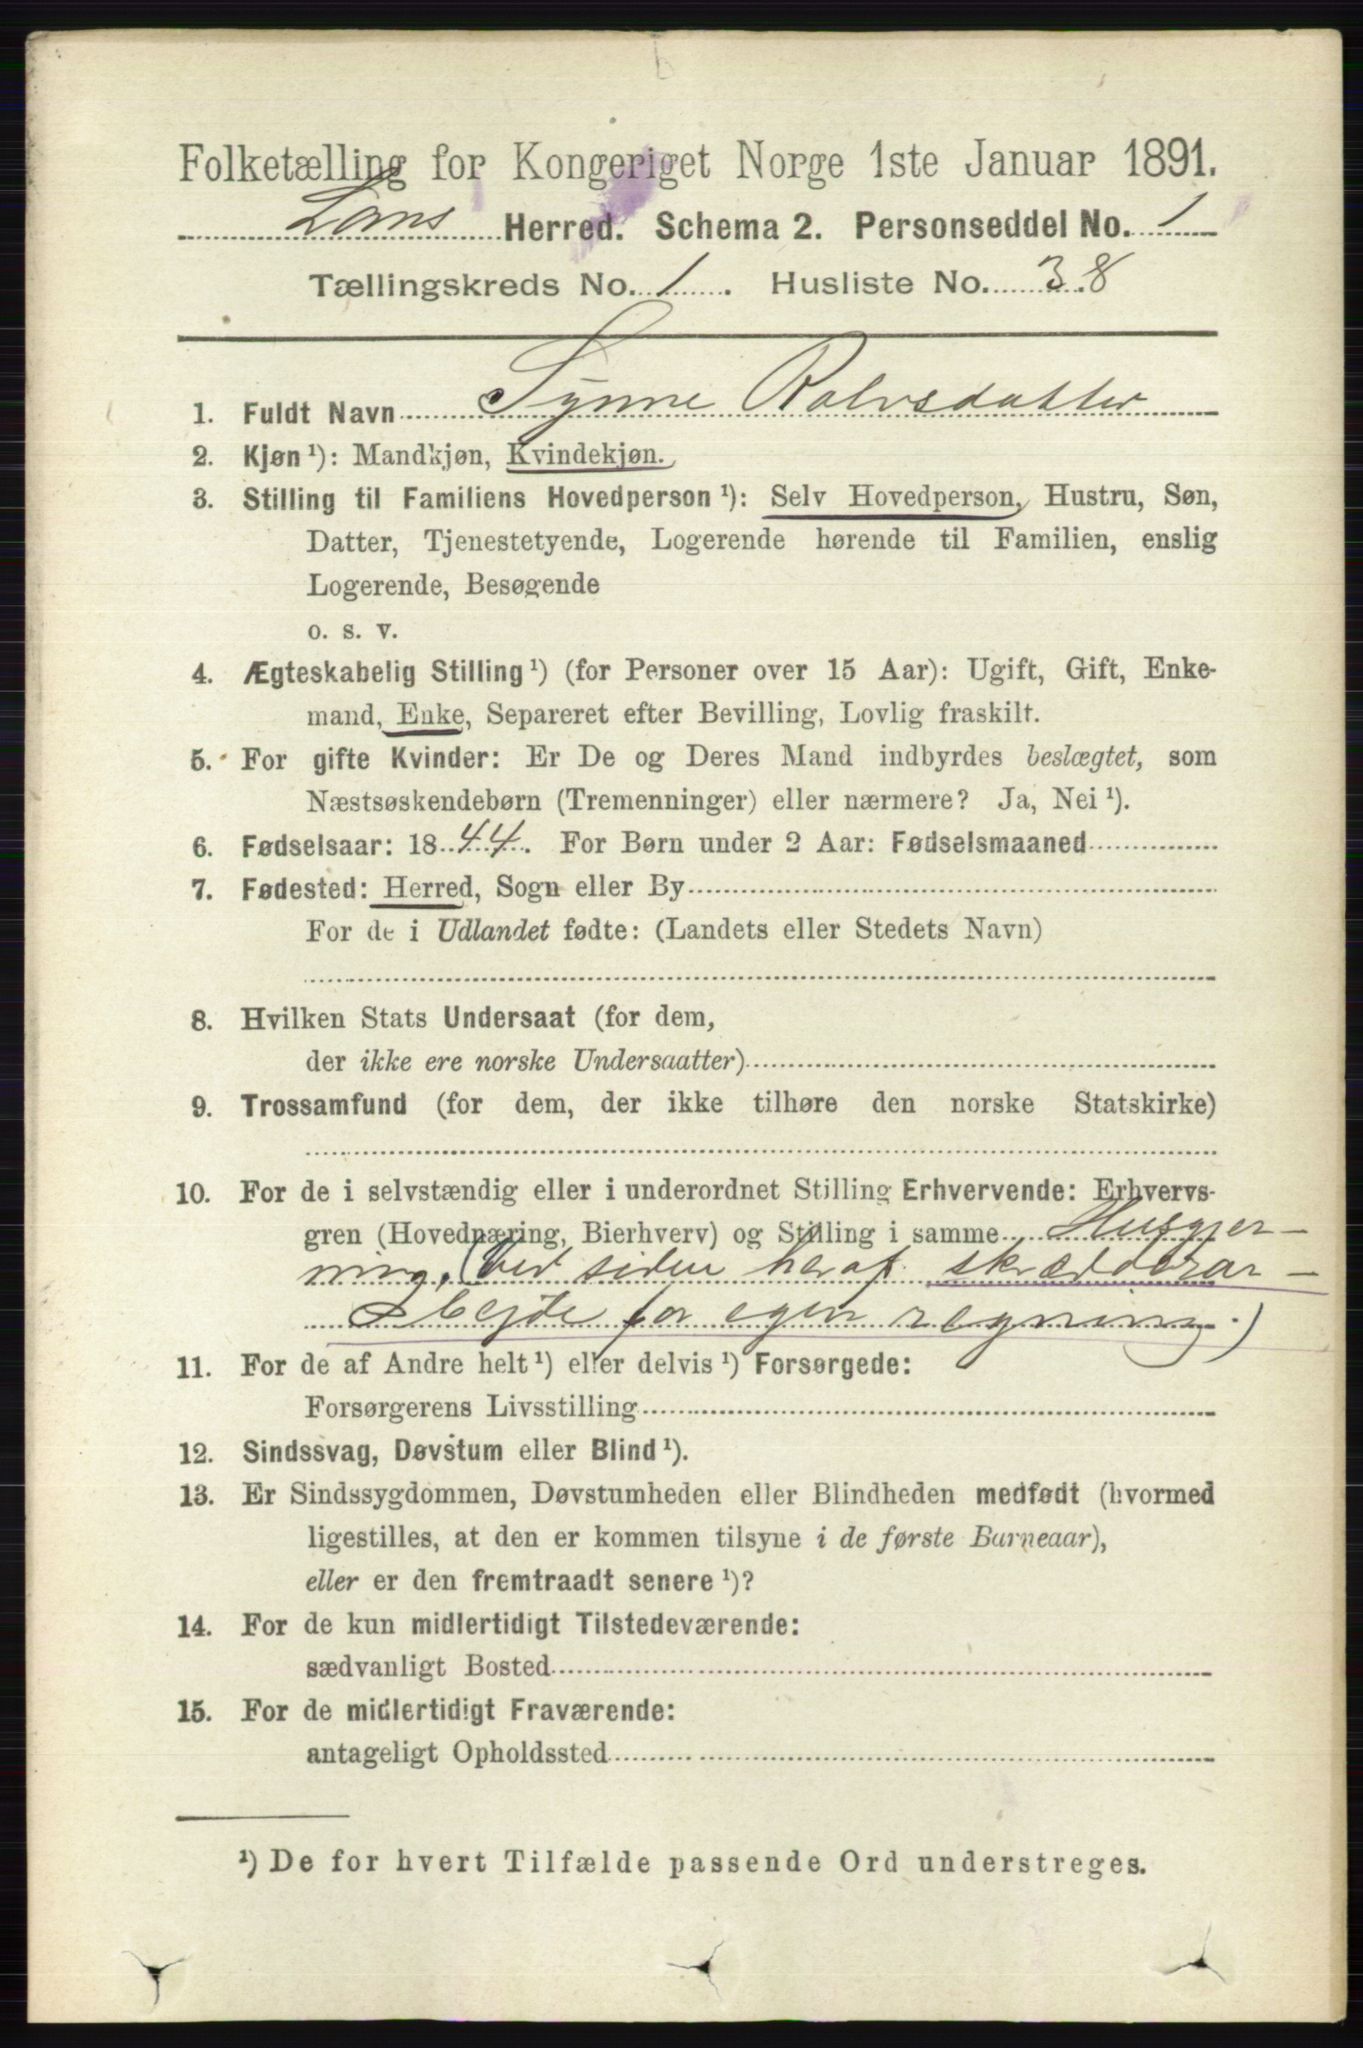 Folketælling for Kongeriget Norge 1ste Januar 1891.
Loms Herred. Schema 2. Personseddel No. 1
Tællingskreds No. 1. Husliste No. 38
1. Fuldt Navn Synne Rolvsdatter
2. Kjøn ¹): Mandkjøn, Kvindekjøn.
3. Stilling til Familiens Hovedperson ¹): Selv Hovedperson, Hustru, Søn,
Datter, Tjenestetyende, Logerende hørende til Familien, enslig
Logerende, Besøgende
o. s. v.
4. Ægteskabelig Stilling ¹) (for Personer over 15 Aar): Ugift, Gift, Enke-
mand, Enke, Separeret efter Bevilling, Lovlig fraskilt.
5. For gifte Kvinder: Er De og Deres Mand indbyrdes beslægtet, som
Næstsøskendebørn (Tremenninger) eller nærmere? Ja, Nei ¹).
6. Fødselsaar: 1844. For Børn under 2 Aar: Fødselsmaaned
7. Fødested: Herred, Sogn eller By
For de i Udlandet fødte: (Landets eller Stedets Navn)
8. Hvilken Stats Undersaat (for dem,
der ikke ere norske Undersaatter)
9. Trossamfund (for dem, der ikke tilhøre den norske Statskirke)
10. For de i selvstændig eller i underordnet Stilling Erhvervende: Erhvervs-
gren (Hovednæring, Bierhverv) og Stilling i samme Husgjer-
ning, (Ved siden heraf skrædderar-
bejde for egen regning.)
11. For de af Andre helt ¹) eller delvis ¹) Forsørgede:
Forsørgerens Livsstilling
12. Sindssvag, Døvstum eller Blind ¹).
13. Er Sindssygdommen, Døvstumheden eller Blindheden medfødt (hvormed
ligestilles, at den er kommen tilsyne i de første Barneaar),
eller er den fremtraadt senere ¹)?
14. For de kun midlertidigt Tilstedeværende:
sædvanligt Bosted
15. For de midlertidigt Fraværende:
antageligt Opholdssted
¹) De for hvert Tilfælde passende Ord understreges.